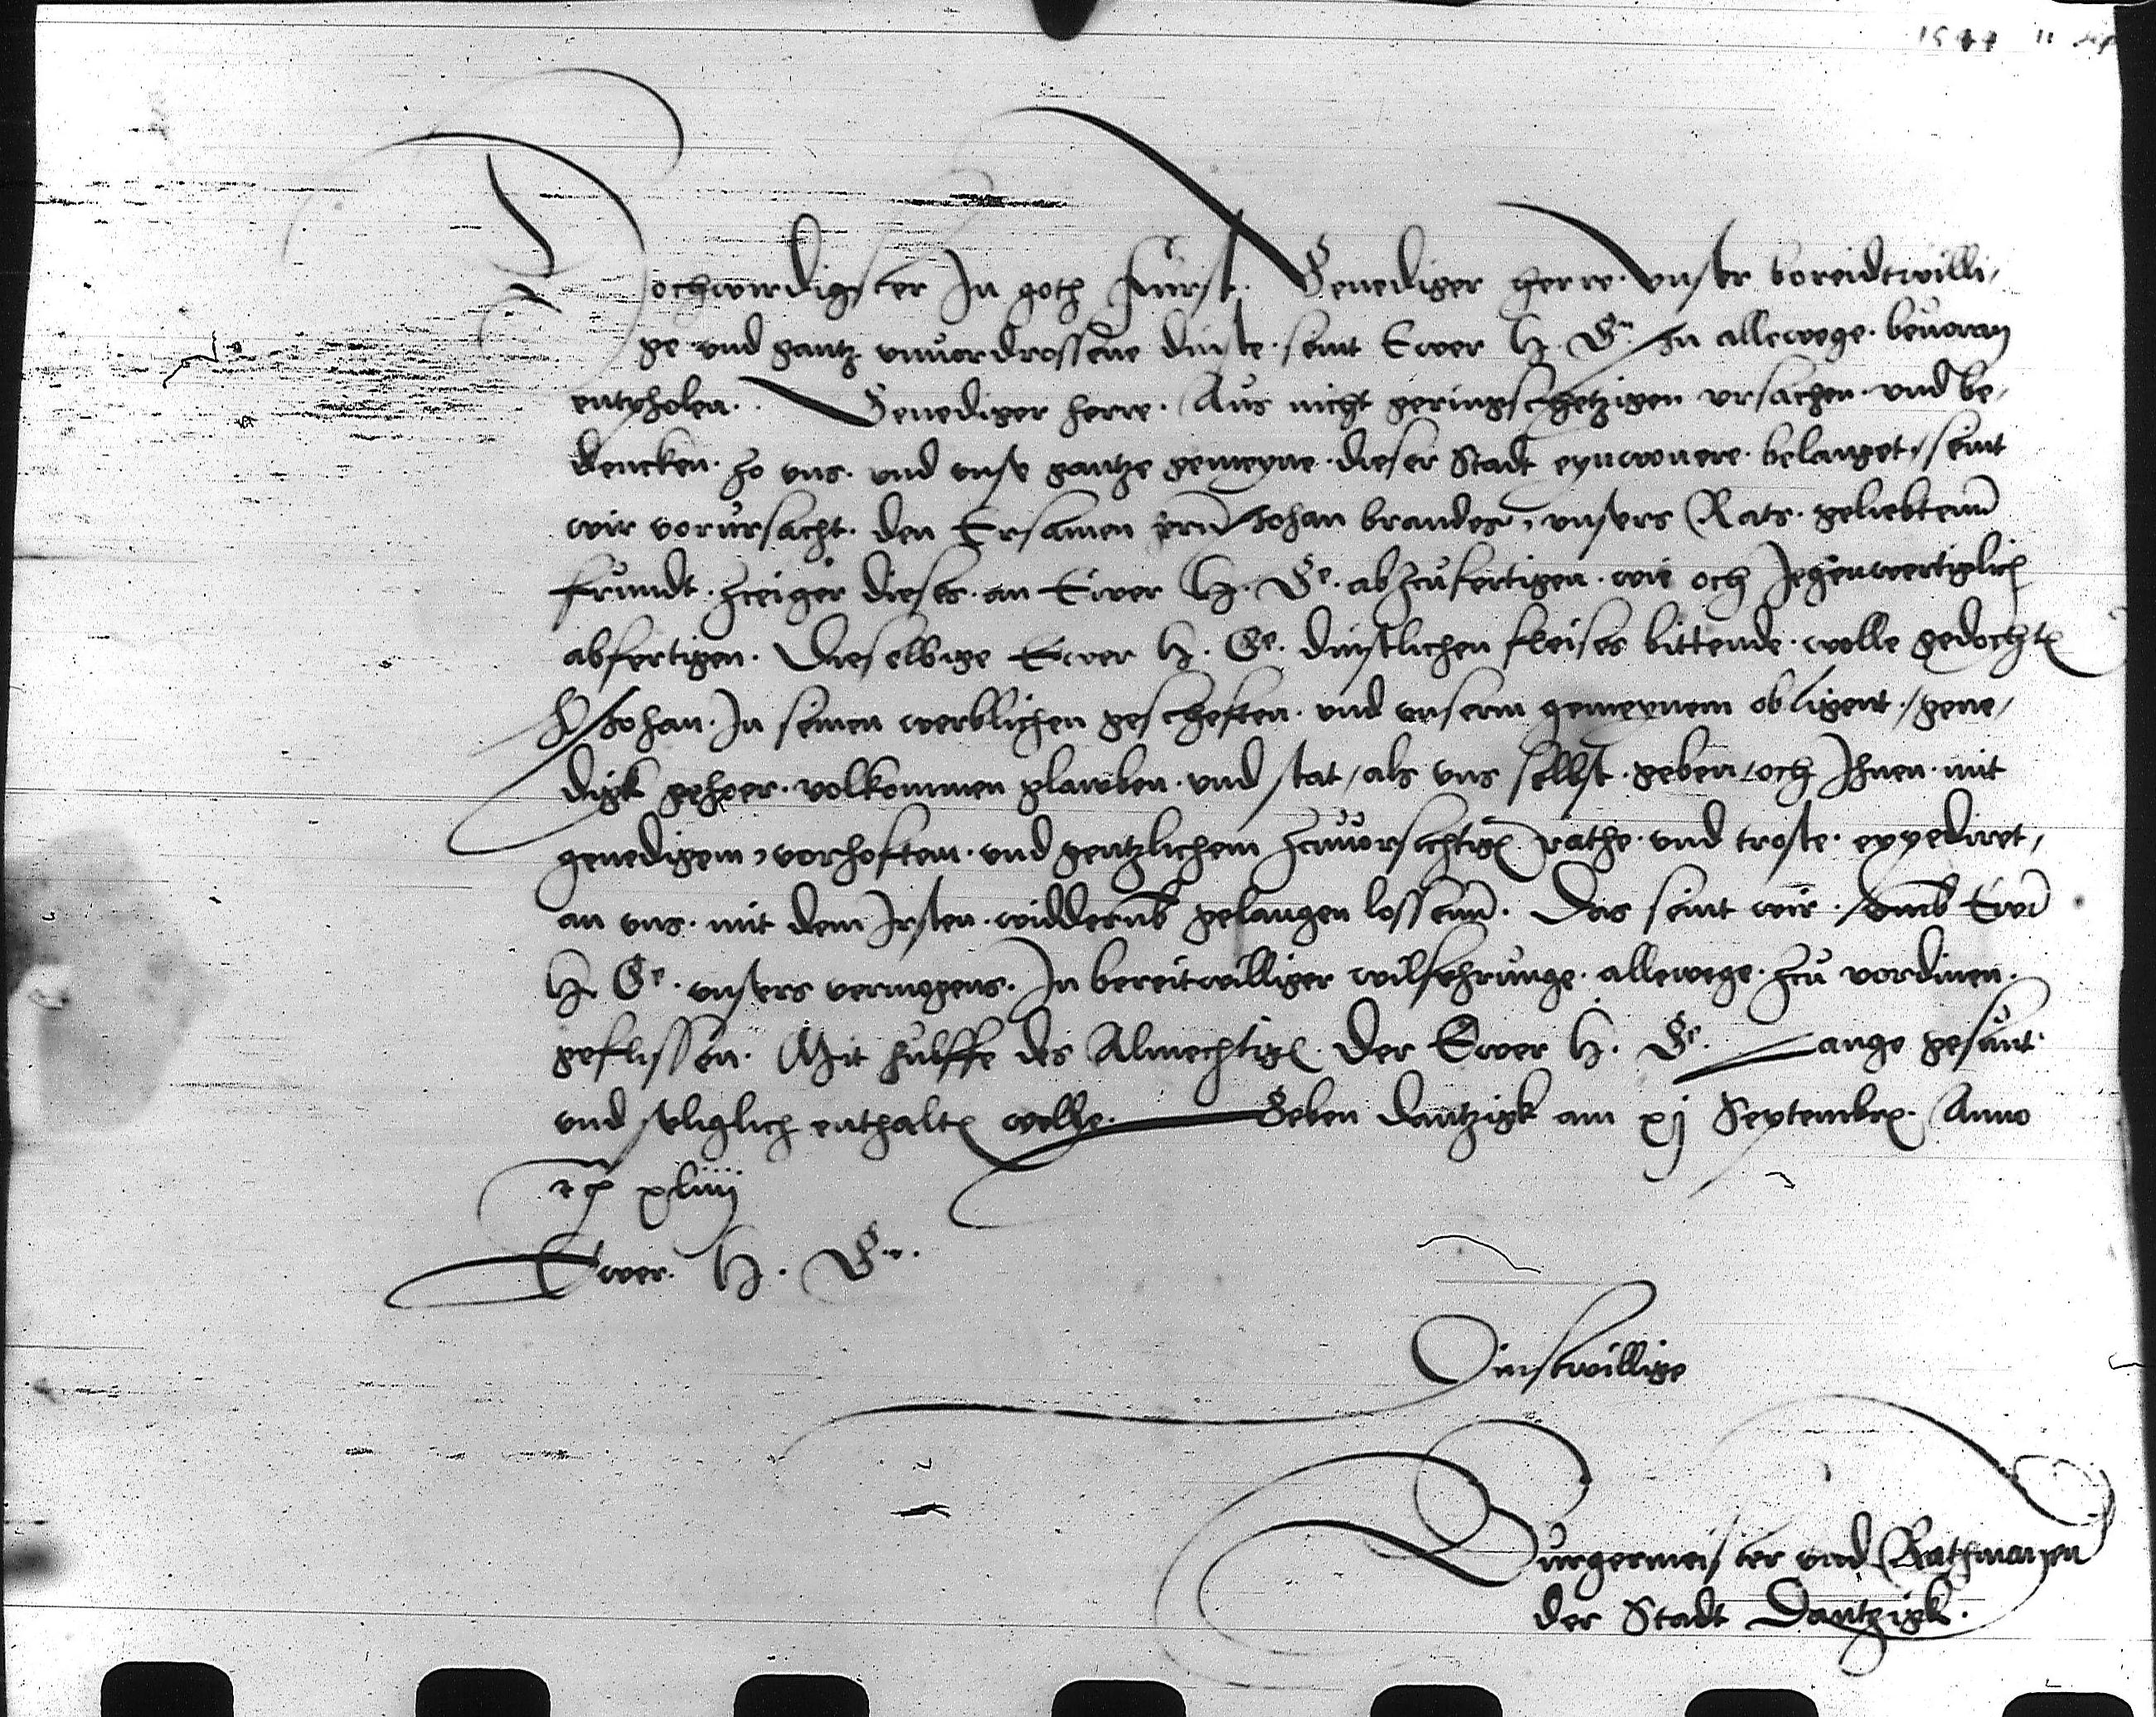 1544 11 Sep
Hochwirdigster In goth Furst. Genediger herre. unser bereidtwilli,
ge und gantz unuordrossene dinste. seint Ewer H. G. In allewege. beuorn
entpholen. Genediger herre. Aus nicht geringschetzigen ursachen. und be,
dencken. so uns. und unse gantze gemeyne. dieser Stadt eynwonere. belanget, seint
wir vorursacht. den Ersamen hern Johan brandes, unsers Rats. geliebtenn
frundt. zceiger dieses. an Ewer H. G. abzcufertigen. wie och Jegenwertiglich
abfertigen. Dieselbige Ewer H. G. dinstlichen fleises bittende. wolle gedochten
H Johan. In seinen werblichen gescheften. und unserm gemeynem obligent, gene,
digk gehoer. volkommen glawben. und stat, als uns selbst. geben, och Ihnen. mit
genedigem, vorhoftem. und gentzlichem zcuuorsichtigen rathe. und troste. expediret,
an uns. mit dem Irsten. widderumb gelangen lossenn. Das seint wir. umb Ewer
H. G. unsers vermogens. In bereitwilliger wilfehrunge. allewege. zcu vordinen.
geflissen. Mit hulffe des Almechtigen. Der Ewer H. G. Lange gesunt
und seliglich enthalten wolle. Geben Dantzigk am xj Septembris. Anno
xliiij
Ewer. H. G.
Dinstwillige
Burgermeister und Rathmanen
der Stadt Dantzigk.